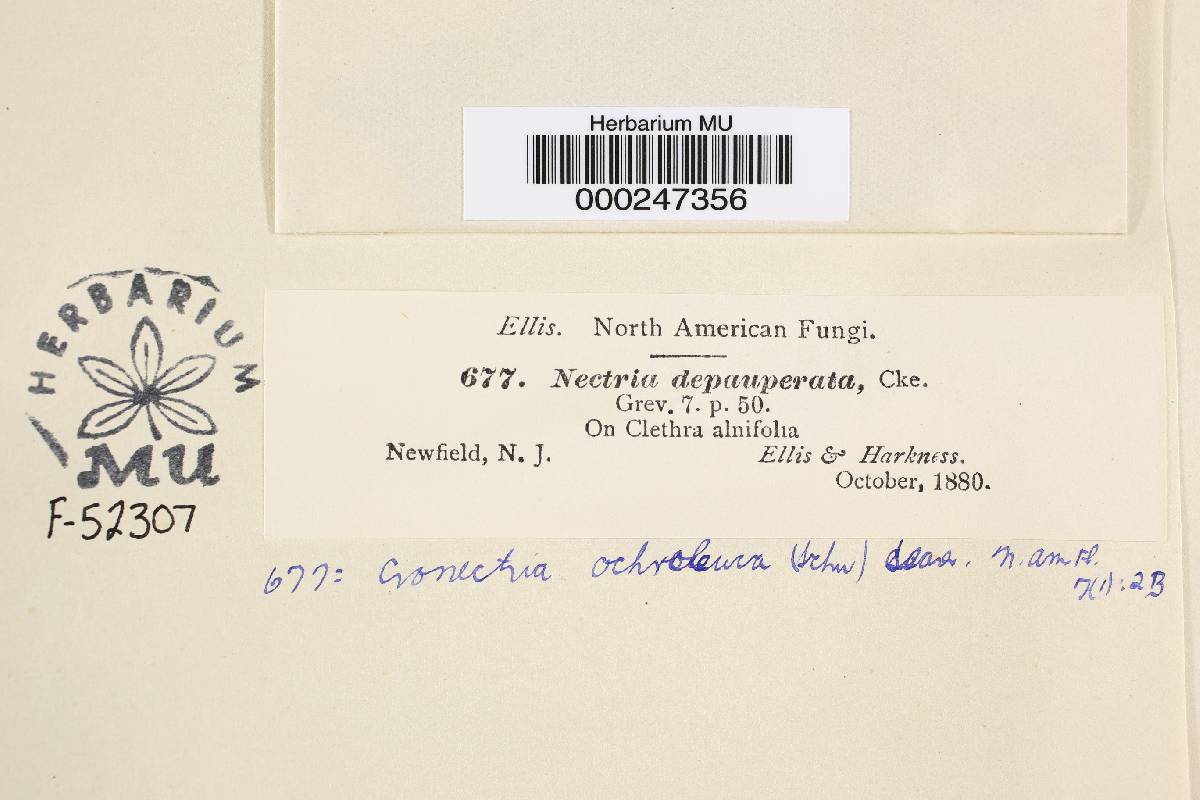 Herbarium MU
000247356
HERBARIUM
MU
F-52307
Ellis. North American Fungi.
677. Nectria depauperata, Cke.
Grev. 7. p. 50.
On Clethra alnifolia
Newfield, N. J. Ellis & Harkness.
October, 1880.
677= Cronectria ochroleuca (Schw) N. Am Fl.
7(1):23